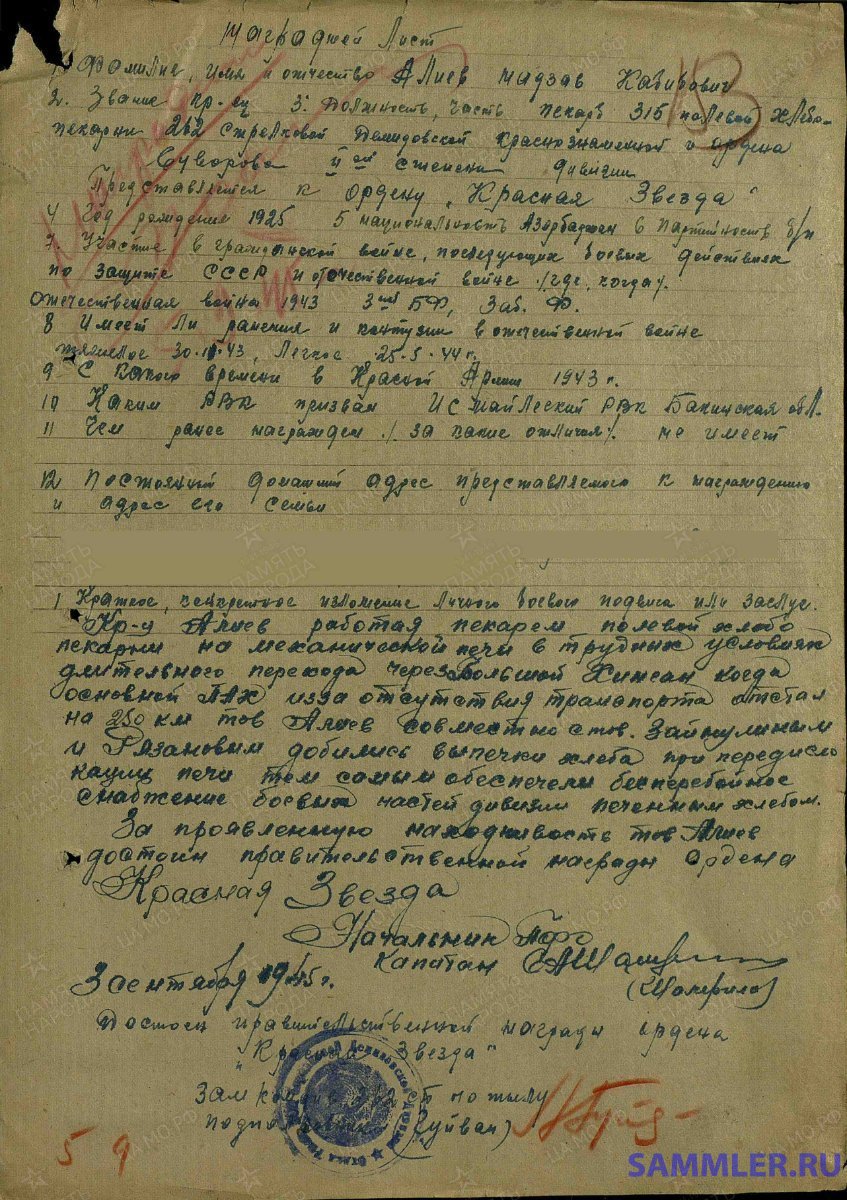 Наградной Лист
1. Фамилия, имя и отчество Алиев Мадзав Кабирович
2. Звание кр-ец 3. Должность, часть пекарь 315 полевой хлебо-
пекарни 262 стрелковой Демидовской краснознаменной и ордена
Суворова II ой степени дивизии
Представляется к ордену "Красная Звезда"
4 Год рождения 1925 5 национальность Азербаджан 6 Партийность б/п
7. Участие в гражданской войне, последующих боевых действиях
по защите СССР и отечественной войне /где, когда/.
отечественная война 1943 3ий БФ, Заб. Ф.
8 Имеет ли ранения и контузии в отечественной войне
тяжелое 43, Легкое 25.5.44 г.
9 С какого времени в Красной Армии 1943 г.
10 Каким РВК призван Исмайлеский РВК Бакинская обл.
11 Чем ранее награжден /за какие отличия/. не имеет
12 Постоянный домашний адрес представляемого к награждению
и адрес его семьи
1 Краткое, конкретное изложение личного боевого подвига или заслуг.
Кр-ц Алиев работая пекарем полевой хлебо
пекарни на механической печи в трудных условиях
длительного перехода через Большой Хинган когда
основной ПАХ изза отсутствия транспорта отстал
на 250 км тов Алиев совместно с тов. Зайнулиным
и Рязановым добились выпечки хлеба при передисло
кации печи тем самым обеспечели бесперебойное
снабжение боевых частей дивизии печенным хлебом.
За проявленную находчивость тов Алиев
достоин правительственной награды Ордена
Красная Звезда
Начальник ПФС
Капитан
3 сентября 1945 г.
Достоен правительственной награды ордена
"Красная Звезда"
Зам ком по тылу
подполковник
5 9
SAMMLER.RU